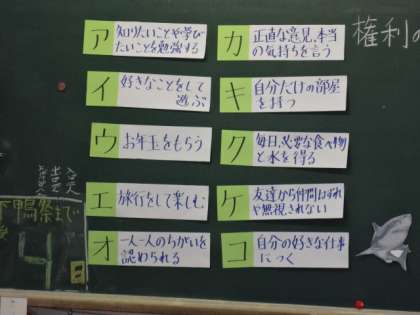 ア 知りたいことや学び
たいことを勉強する
イ 好きなことをして
遊ぶ
ウ お年玉をもらう
エ 旅行をして楽しむ
オ 一人一人のちがいを
認められる
カ 正直な意見、本当
の気持ちを言う
キ 自分だけの部屋
を持つ
ク 毎日、必要な食べ物
と水を得る
ケ 友達から仲間はずれ
や無視されない
コ 自分の好きな仕事
につく
権利の
鴨祭まで
4